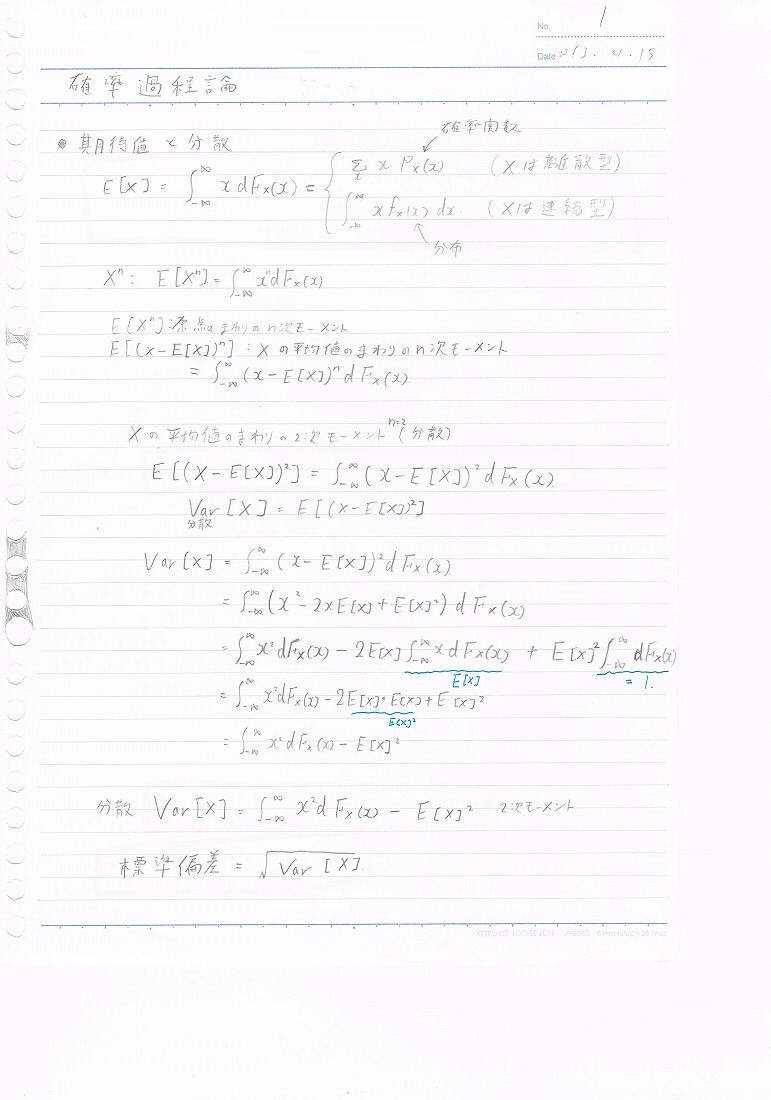 No. 1
Date 2013. 4. 15
確率過程論
● 期待値と分散
確率関数
E[X] = ∫_{-∞}^{∞} x dF_X(x) = { Σ_x x P_X(x) (Xは離散型)
∫_{-∞}^{∞} x f_X(x) dx. (Xは連続型)
分布
X^n : E[X^n] = ∫_{-∞}^{∞} x^n dF_X(x)
E[X^n] : 原点のまわりのn次モーメント
E[(X-E[X])^n] : Xの平均値のまわりのn次モーメント
= ∫_{-∞}^{∞} (x-E[X])^n dF_X(x).
Xの平均値のまわりの2次モーメント n=2 (分散)
E[(X-E[X])^2] = ∫_{-∞}^{∞} (x-E[X])^2 dF_X(x).
Var[X] = E[(X-E[X])^2]
分散
Var[X] = ∫_{-∞}^{∞} (x-E[X])^2 dF_X(x).
= ∫_{-∞}^{∞} (x^2-2xE[X]+E[X]^2) dF_X(x)
= ∫_{-∞}^{∞} x^2 dF_X(x) - 2E[X] ∫_{-∞}^{∞} x dF_X(x) + E[X]^2 ∫_{-∞}^{∞} dF_X(x)
E[X] = 1.
= ∫_{-∞}^{∞} x^2 dF_X(x) - 2E[X]・E[X] + E[X]^2
E[X]^2
= ∫_{-∞}^{∞} x^2 dF_X(x) - E[X]^2
分散 Var[X] = ∫_{-∞}^{∞} x^2 dF_X(x) - E[X]^2 2次モーメント
標準偏差 = √Var[X].
KOKUYO LOOSE-LEAF ノ-836B 6 mm ruled × 36 lines